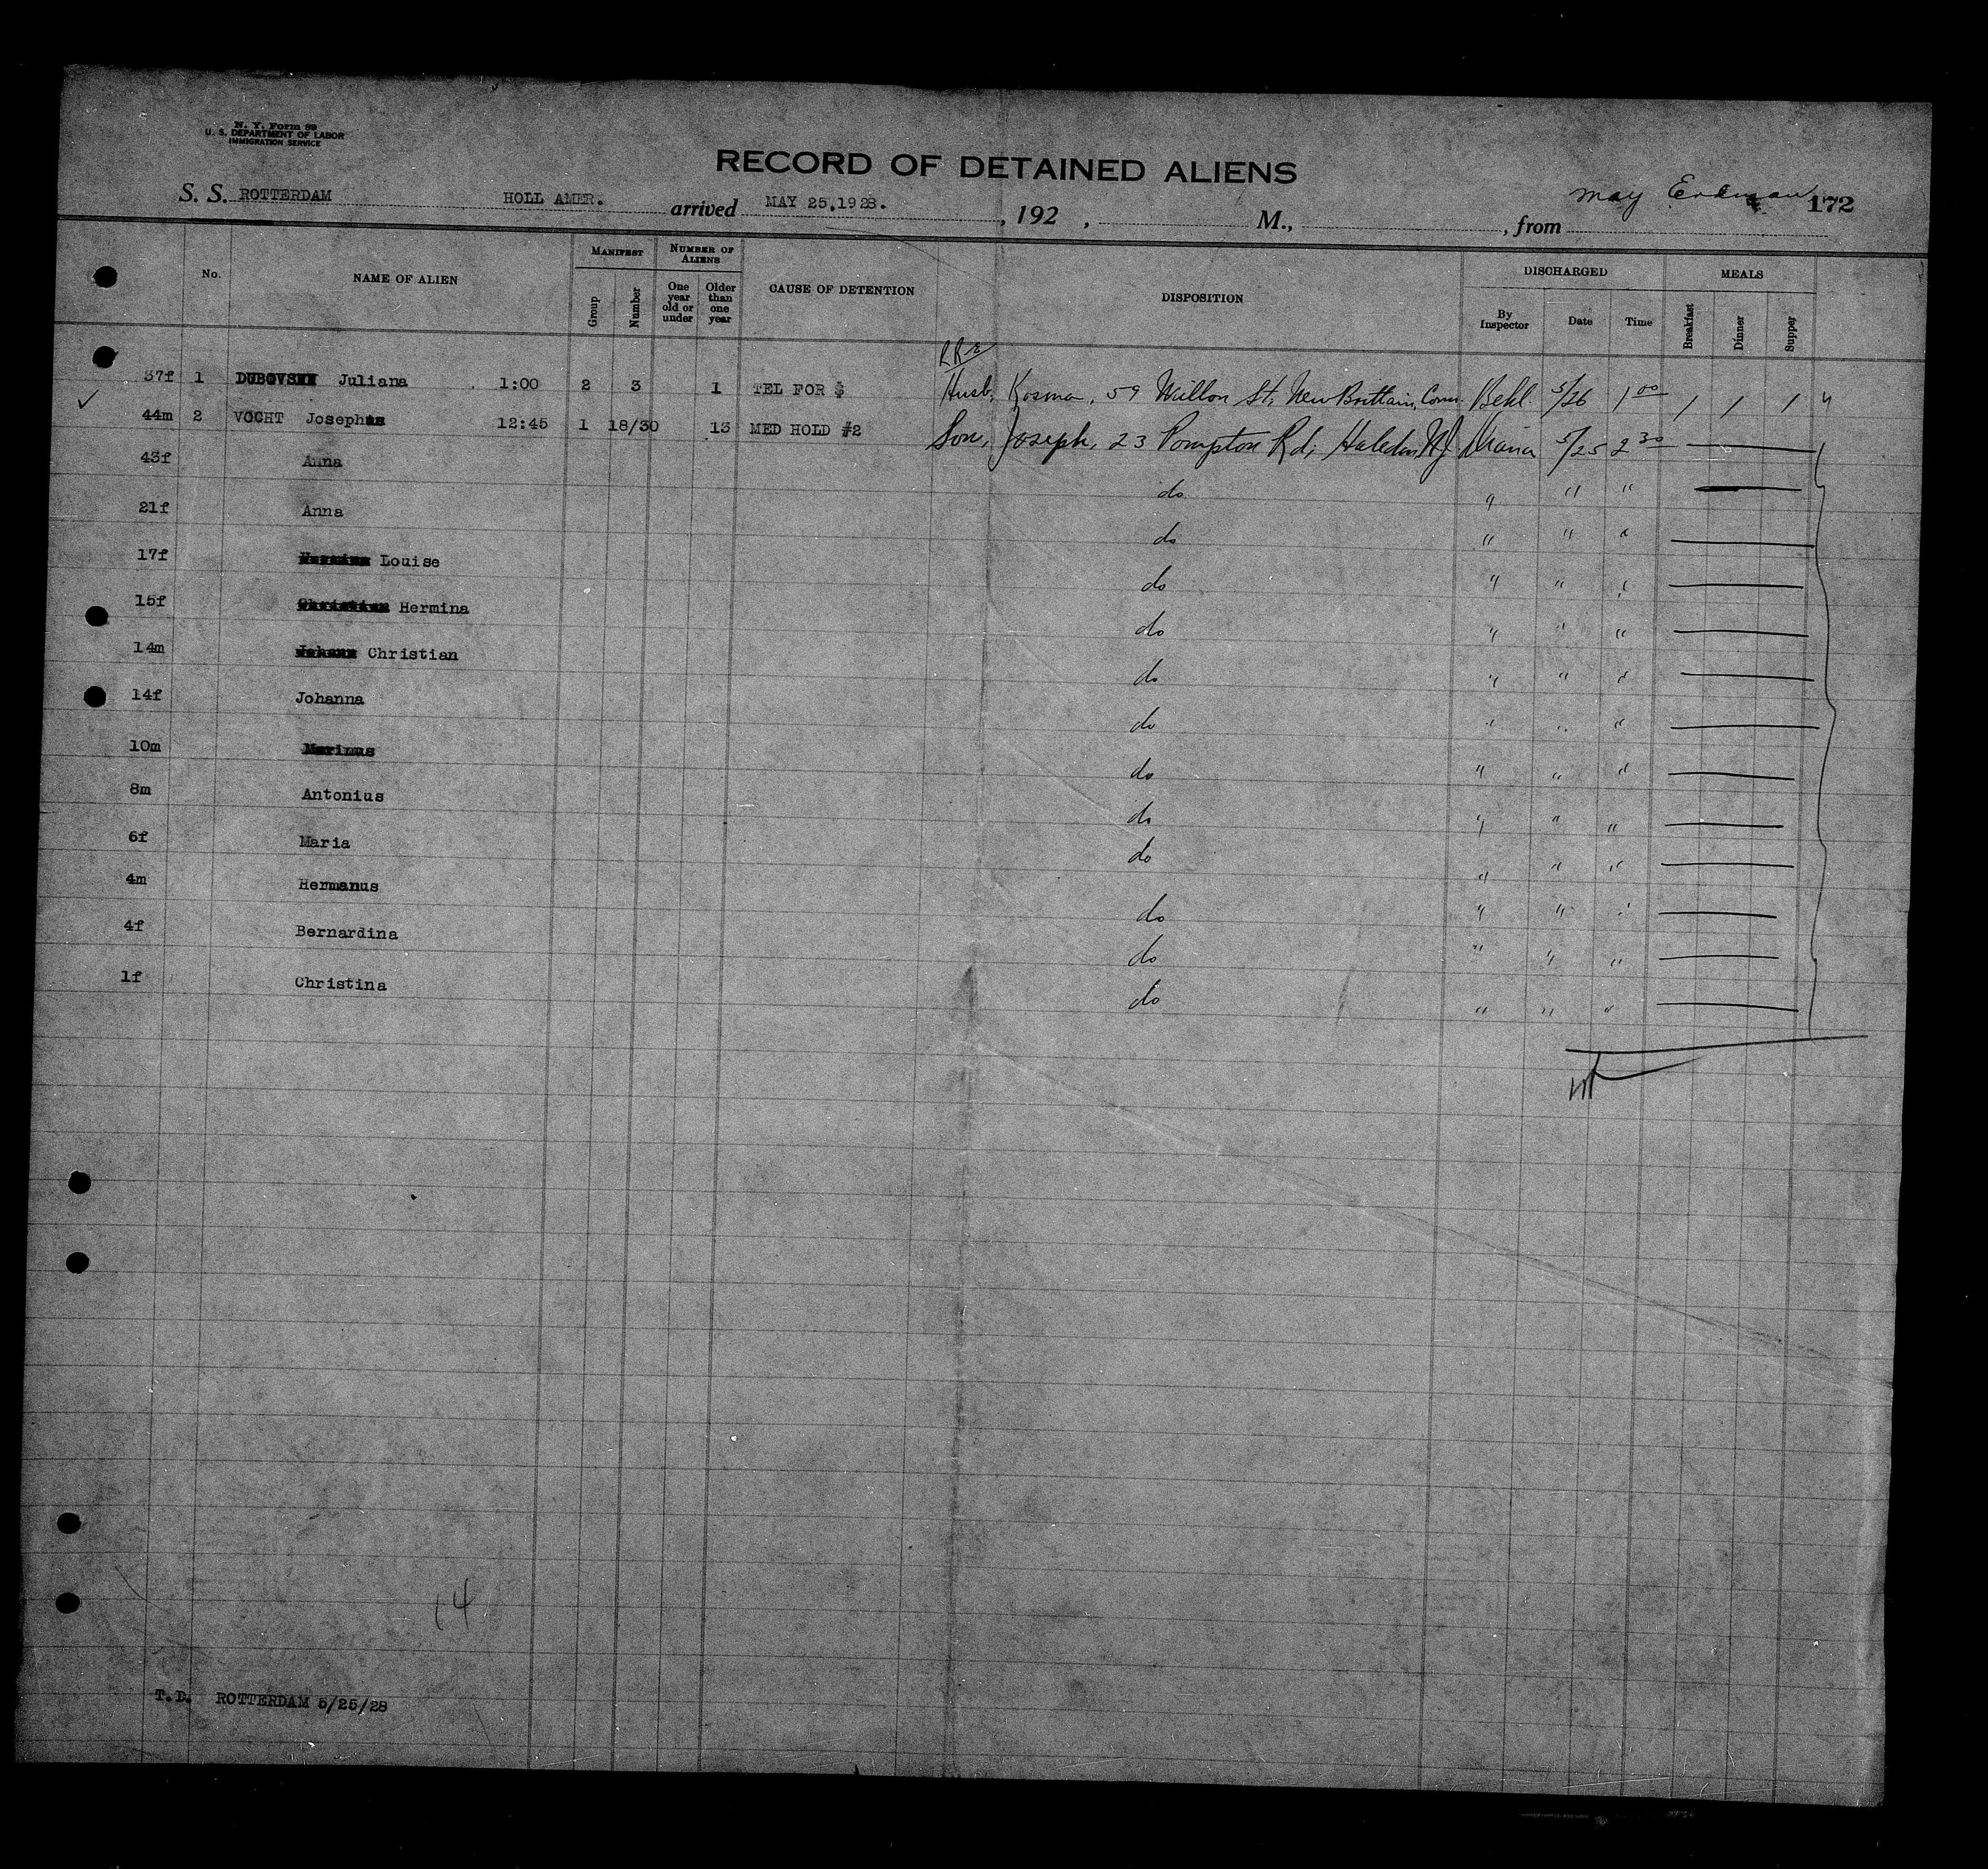 N. Y. Form 89
U. S. DEPARTMENT OF LABOR
IMMIGRATION SERVICE
RECORD OF DETAINED ALIENS
S. S. ROTTERDAM HOLL AMER. arrived MAY 25,1928. , 192 , M., , from May 172
No. NAME OF ALIEN MANIFEST Group Number NUMBER OF ALIENS One year old or under Older than one year CAUSE OF DETENTION DISPOSITION DISCHARGED By Inspector Date Time MEALS Breakfast Dinner Supper
37f 1 Juliana 1:00 2 3 1 TEL FOR $ Husb, Kosma, 59 St, New Brittain, Conn. Behl. 5/26 1 00 / / /
44m 2 VOCHT Josephus 12:45 1 18/30 13 MED HOLD #2 Son, Joseph, 23 Pompton Rd; Haledon NJ 5/25 2 30
43f Anna do " " "
21f Anna do " " "
17f Louise do " " "
15f Hermina do " " "
14m Christian do " " "
14f Johanna do " " "
10m Marinus do " " "
8m Antonius do " " "
6f Maria do " " "
4m Hermanus do " " "
4f Bernardina do " " "
1f Christina do " " "
14
T.D. ROTTERDAM 5/25/28